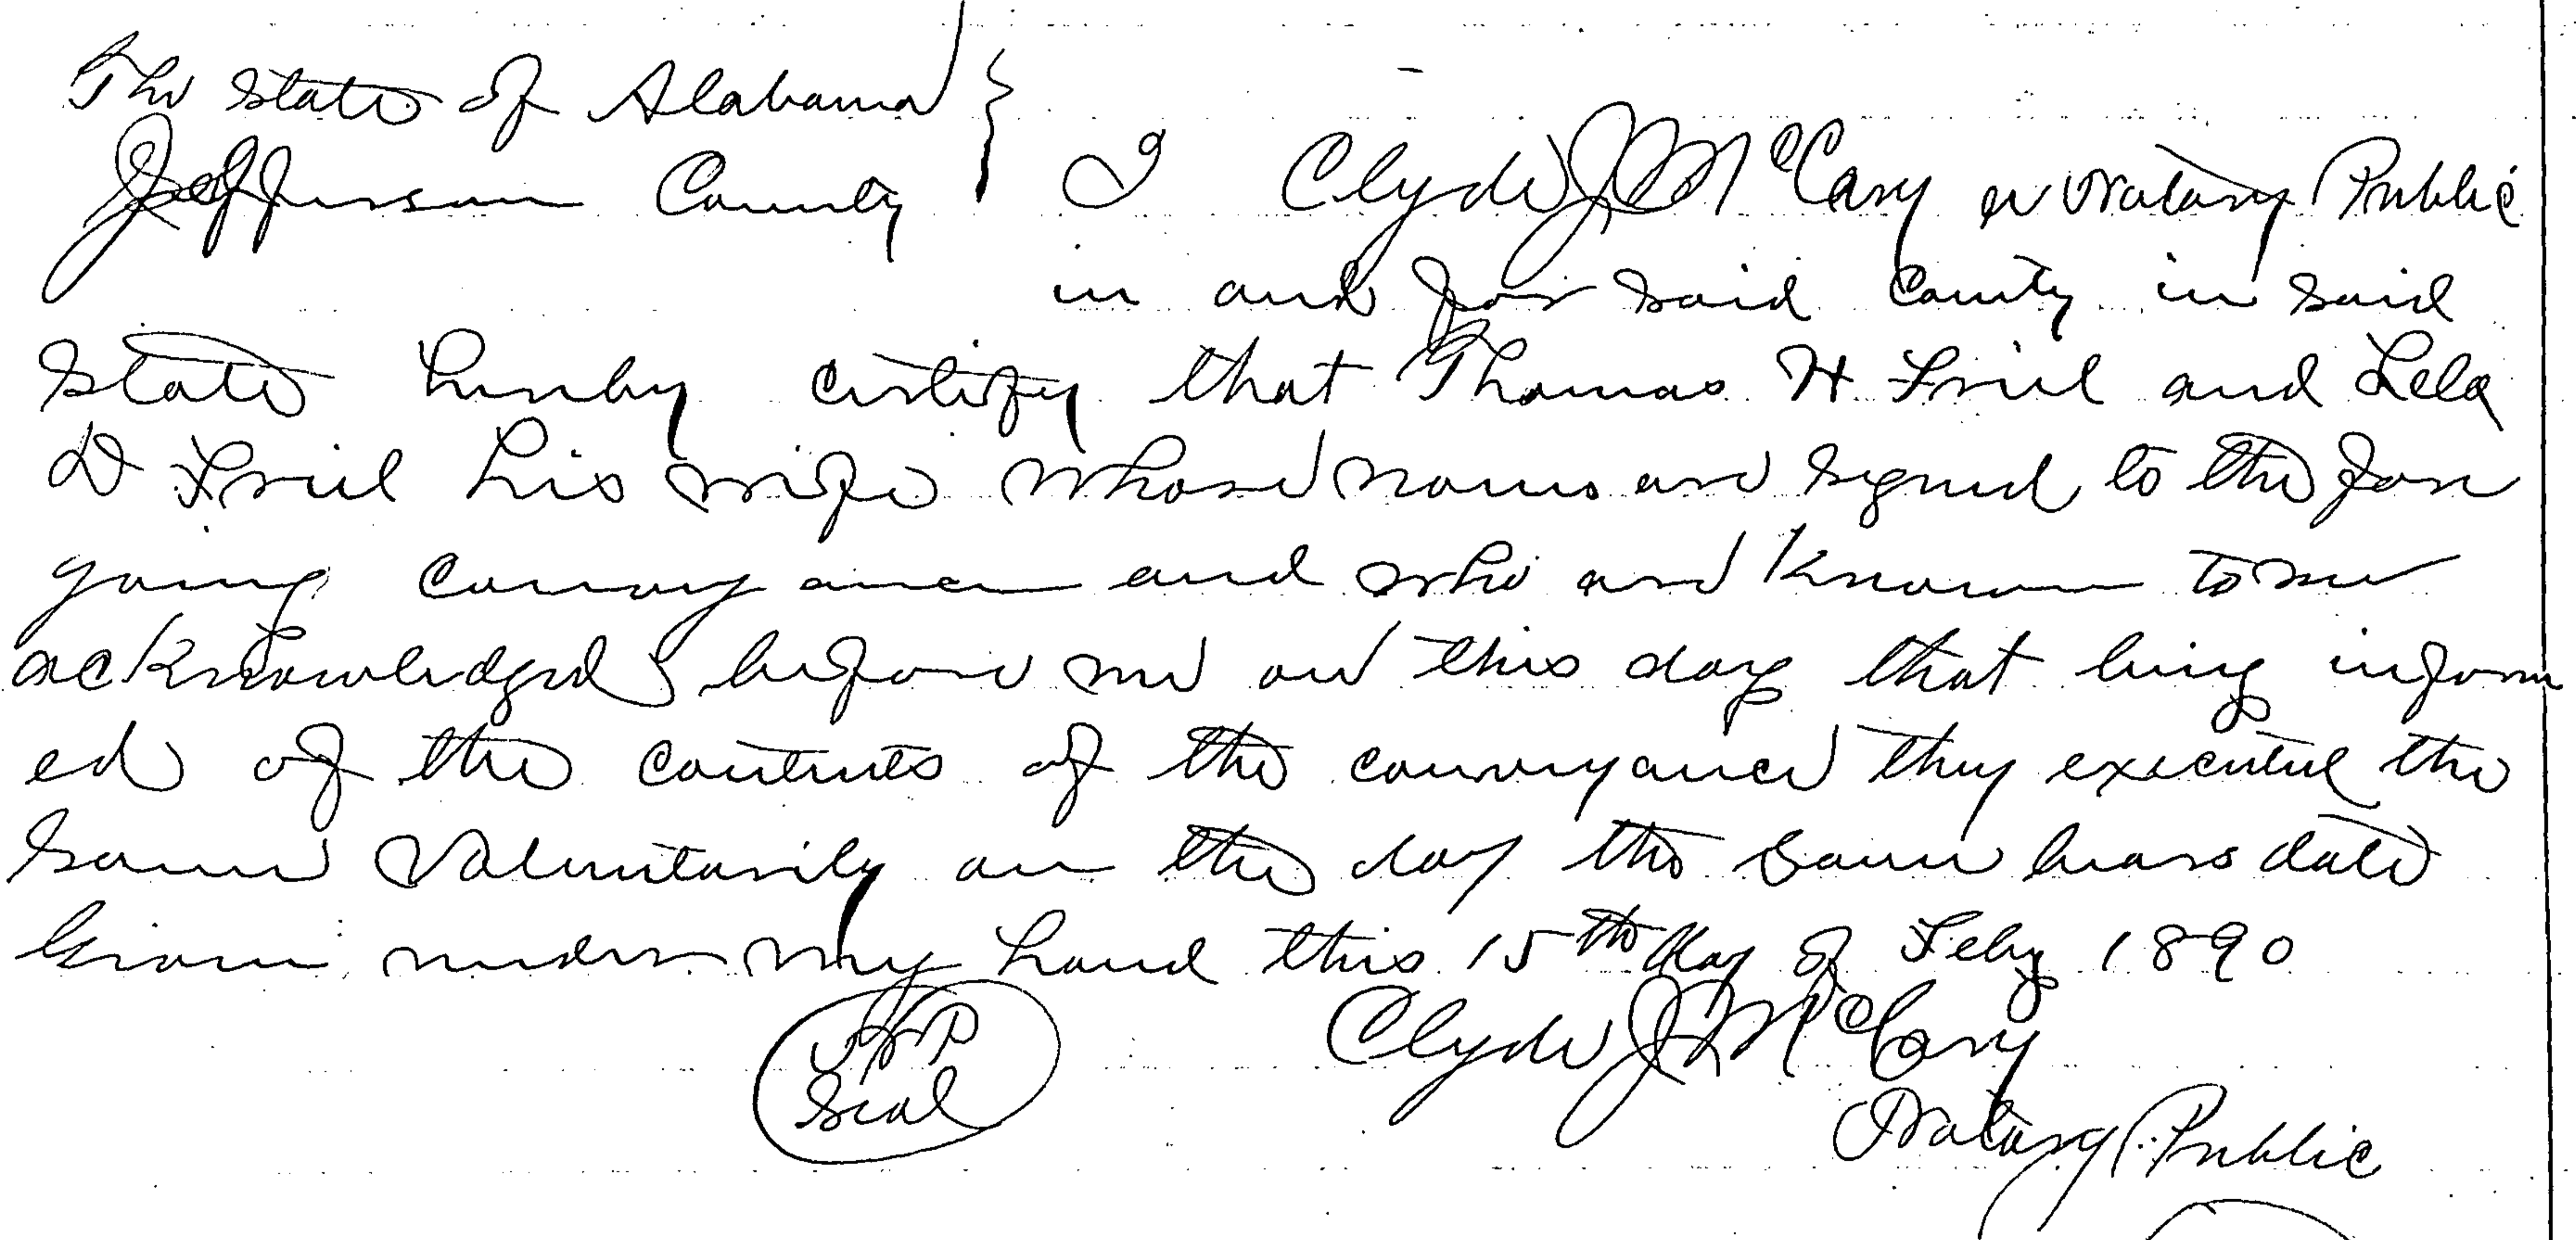 The State of Alabama
Jefferson County } I Clyde J McCary a Notary Public
in and for said County in said
State hereby certify that Thomas H Friel and Lela
D Friel his wife whose names are signed to the fore
going conveyance and who are known to me
acknowledged before me on this day that being inform
ed of the contents of the conveyance they executed the
same voluntarily on the day the same bears date
Given under my hand this 15th day of Feby 1890
Clyde J McCary
Seal
Notary Public